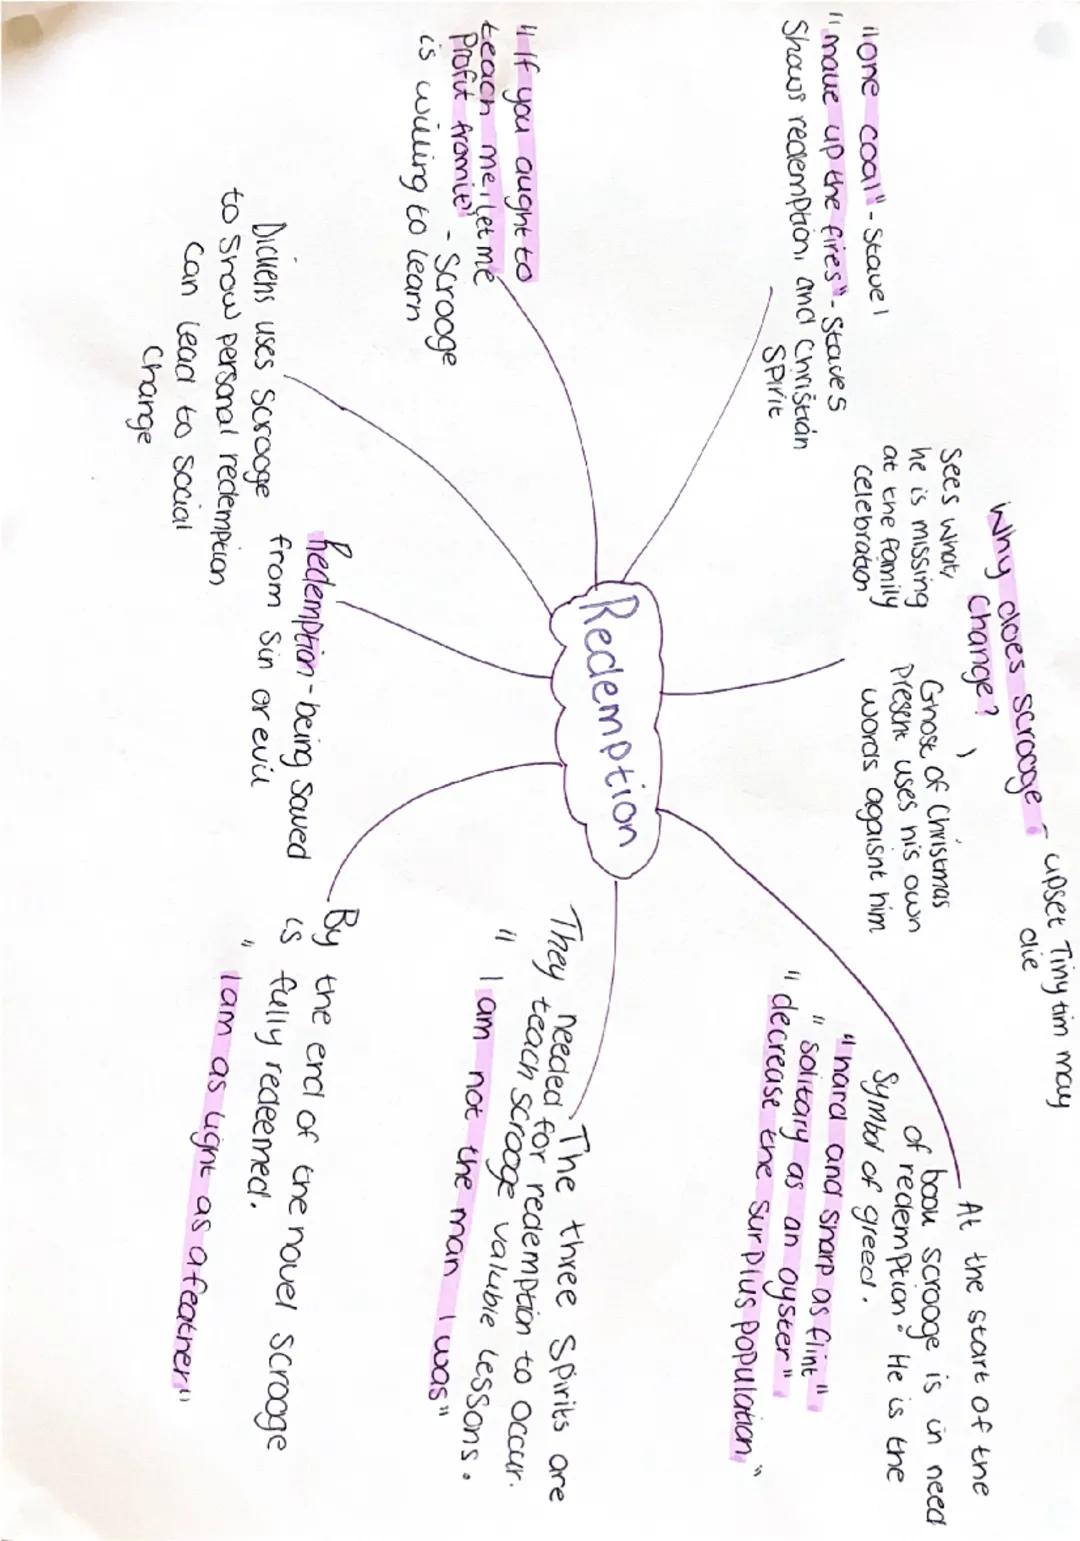 Why does scrooge
change?
- upset Tiny tim may
die
Sees what,
he is missing
at the family
celebration
Ghost of Christmas
Present uses his own
words agaisnt him
"one coal" - Stave 1
"make up the fires" - Stave 5
Shows redemption, and Christian
Spirit
At the start of the
book scrooge is in need
of redemption. He is the
Symbol of greed.
"hard and sharp as flint"
"solitary as an oyster"
"decrease the surplus population"
Redemption
"If you aught to
teach me, let me
Profit from it" - Scrooge
is willing to learn
The three Spirits are
needed for redemption to occur.
They teach Scrooge valuble lessons.
"I am not the man I was"
Dickens uses Scrooge
to Show personal redemption
can lead to social
Change
Redemption - being Saved
from Sin or evil
By the end of the novel Scrooge
is fully redeemed.
"I am as light as a feather"